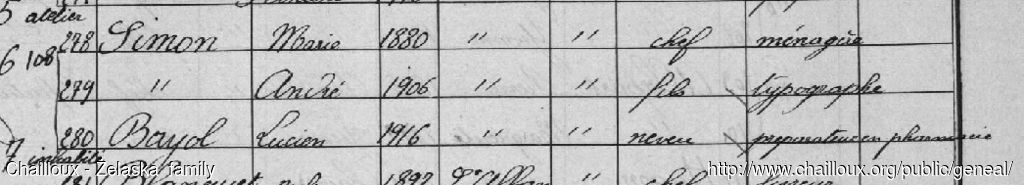 5 atelier
278 Simon Marie 1880 " " chef ménagère
6 108
279 " André 1906 " " fils typographe
280 Bayol Lucien 1916 " " neveu preparateur en pharmacie
7 inhabité
281 1892 " chef
Chailloux - Zelaska family http://www.chailloux.org/public/geneal/